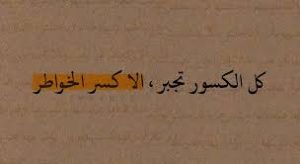 كل الكسور تجبر ، الا كسر الخواطر